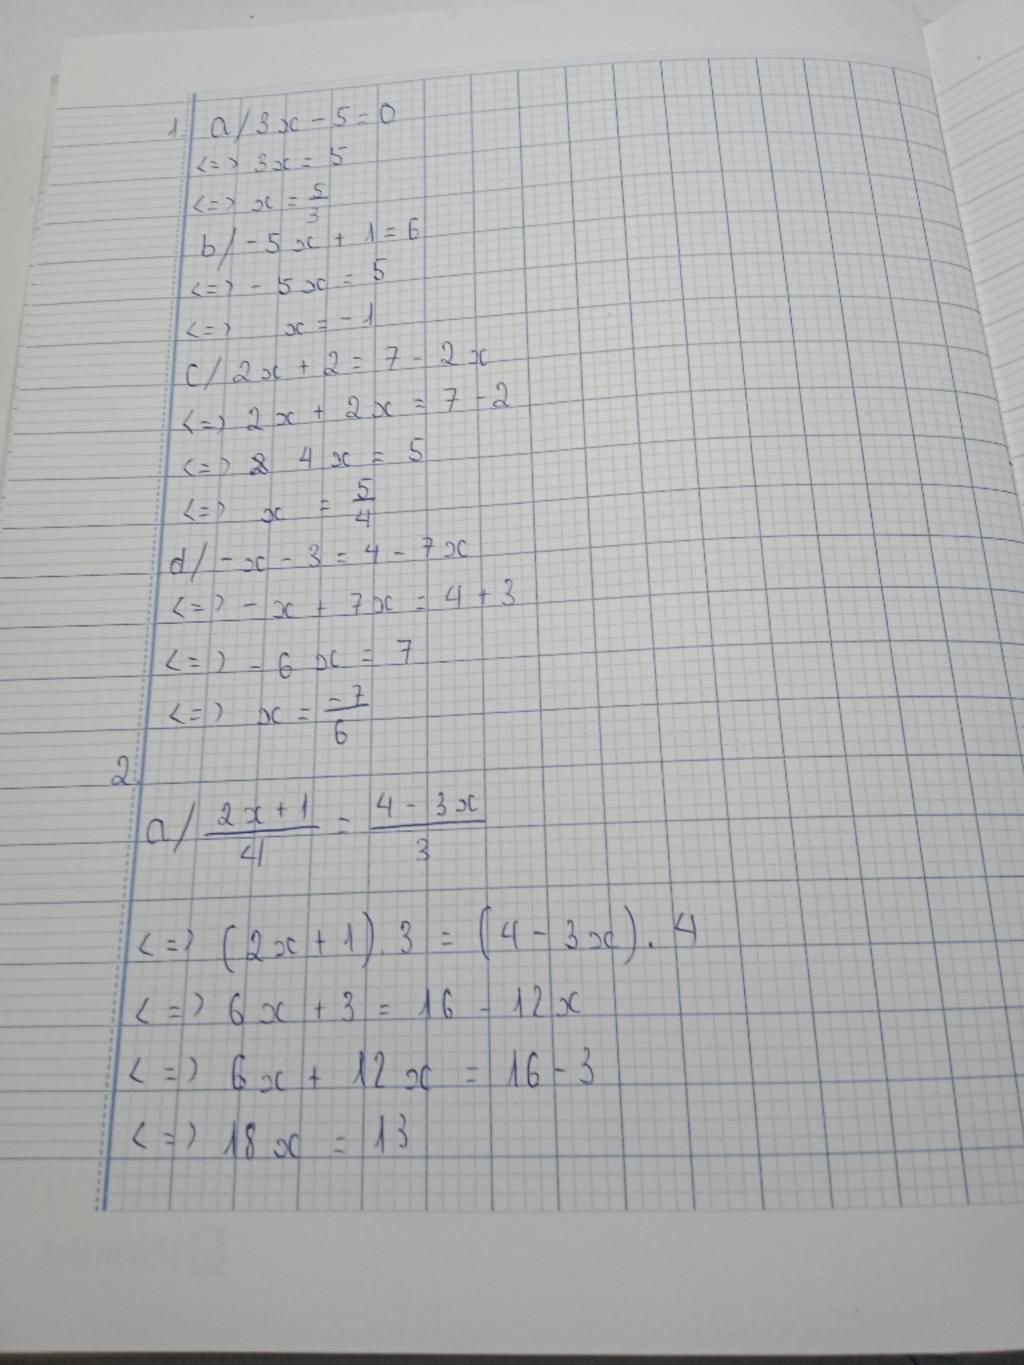 1. a/ 3x - 5 = 0
<=> 3x = 5
<=> x = 5/3
b/ -5x + 1 = 6
<=> -5x = 5
<=> x = -1
c/ 2x + 2 = 7 - 2x
<=> 2x + 2x = 7 - 2
<=> 4x = 5
<=> x = 5/4
d/ -x - 3 = 4 - 7x
<=> -x + 7x = 4 + 3
<=> -6x = 7
<=> x = -7/6
2.
a/ (2x + 1)/4 = (4 - 3x)/3
<=> (2x + 1).3 = (4 - 3x).4
<=> 6x + 3 = 16 - 12x
<=> 6x + 12x = 16 - 3
<=> 18x = 13